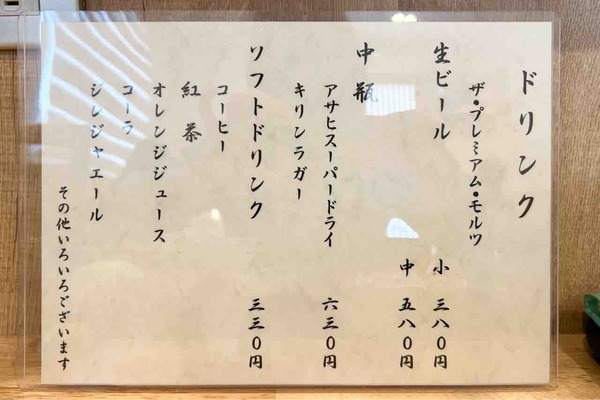 ドリンク
ザ・プレミアム・モルツ
生ビール 小 三八〇円
中 五八〇円
中瓶
アサヒスーパードライ 六三〇円
キリンラガー
ソフトドリンク 三三〇円
コーヒー
紅茶
オレンジジュース
コーラ
ジンジャエール
その他いろいろございます